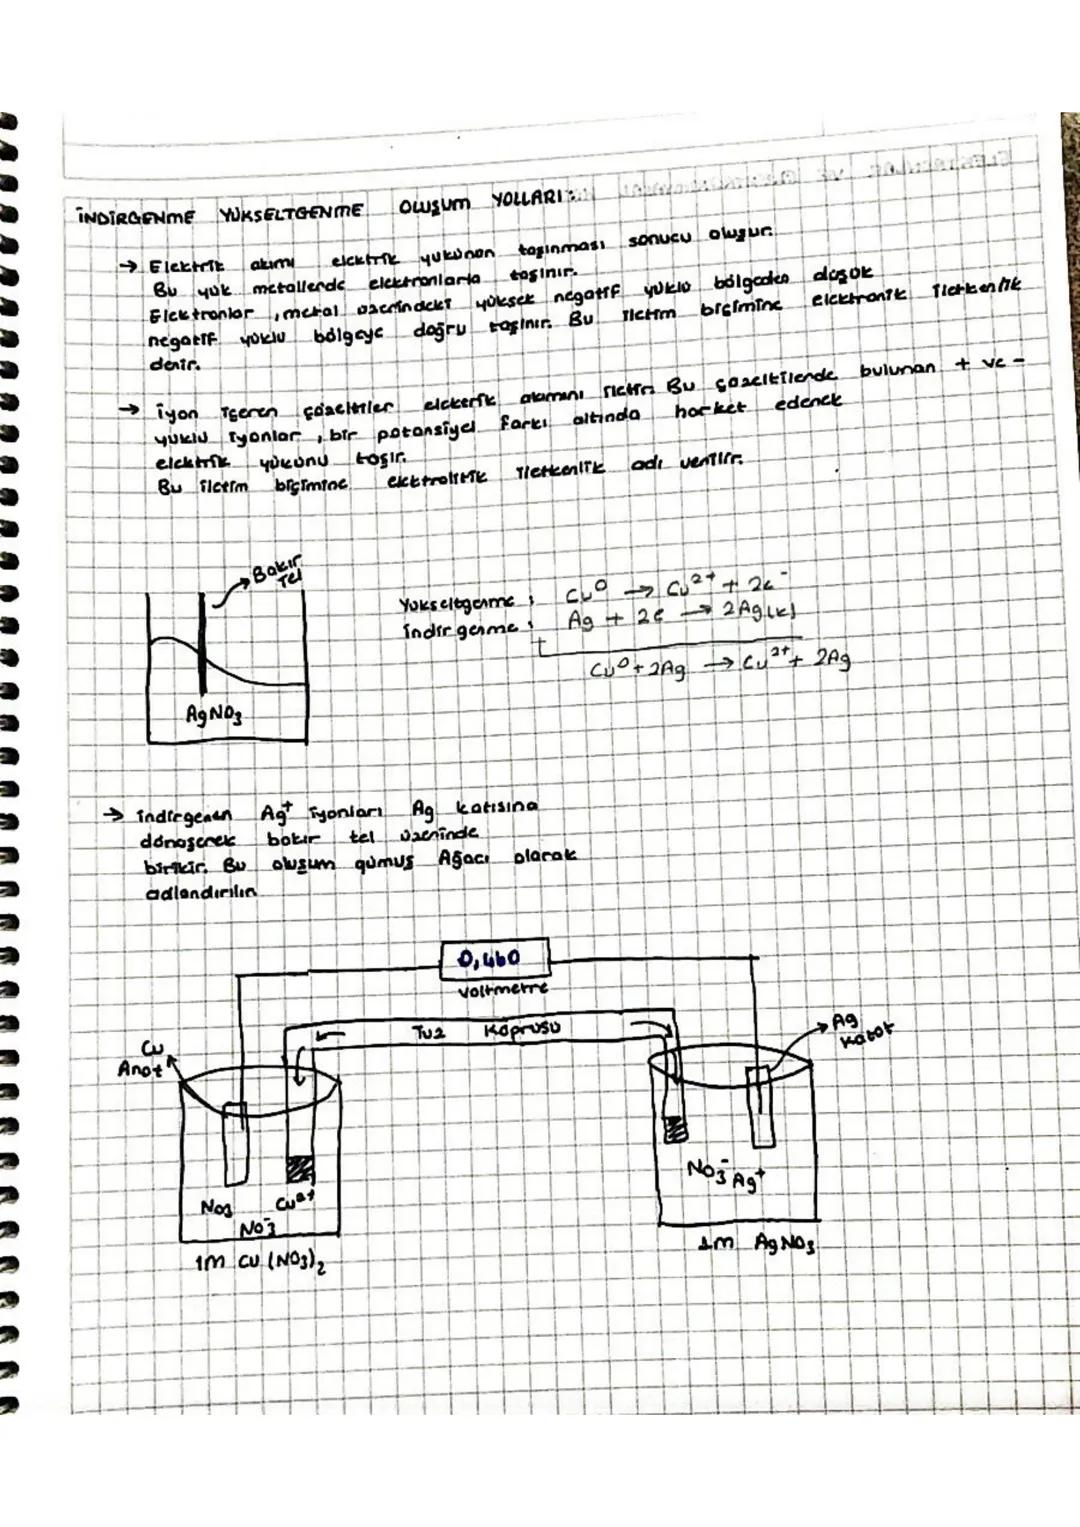 İNDİRGENME YÜKSELTGENME OLUŞUM YOLLARI:
→ Elektrik akımı elektrik yükünün taşınması sonucu oluşur.
Bu yük metallerde elektronlarla taşınır.
Elektronlar, metal üzerindeki yüksek negatif yüklü bölgeden düşük
negatif yüklü bölgeye doğru taşınır. Bu iletim biçimine elektronik iletkenlik
denir.
→ iyon içeren çözeltiler elektrik akımını iletir. Bu çözeltilerde bulunan + ve -
yüklü iyonlar, bir potansiyel farkı altında harket ederek
elektrik yükünü taşır.
Bu iletim biçimine elektrolitik iletkenlik adı verilir.
Bakır
Tel
AgNO3
Yükseltgenme: Cu⁰ → Cu²⁺ + 2e⁻
indirgenme: Ag + 2e → 2Ag(k)
+
Cu⁰ + 2Ag → Cu²⁺ + 2Ag
→ indirgenen Ag⁺ iyonları Ag katısına
dönüşerek bakır tel üzerinde
birikir. Bu oluşum gümüş Ağacı olarak
adlandırılır.
0,460
voltmetre
Tuz Köprüsü
Cu
Anot
Ag
Katot
NO3
Cu²⁺
NO3⁻
NO3⁻ Ag⁺
1m Cu(NO3)2
1m AgNO3